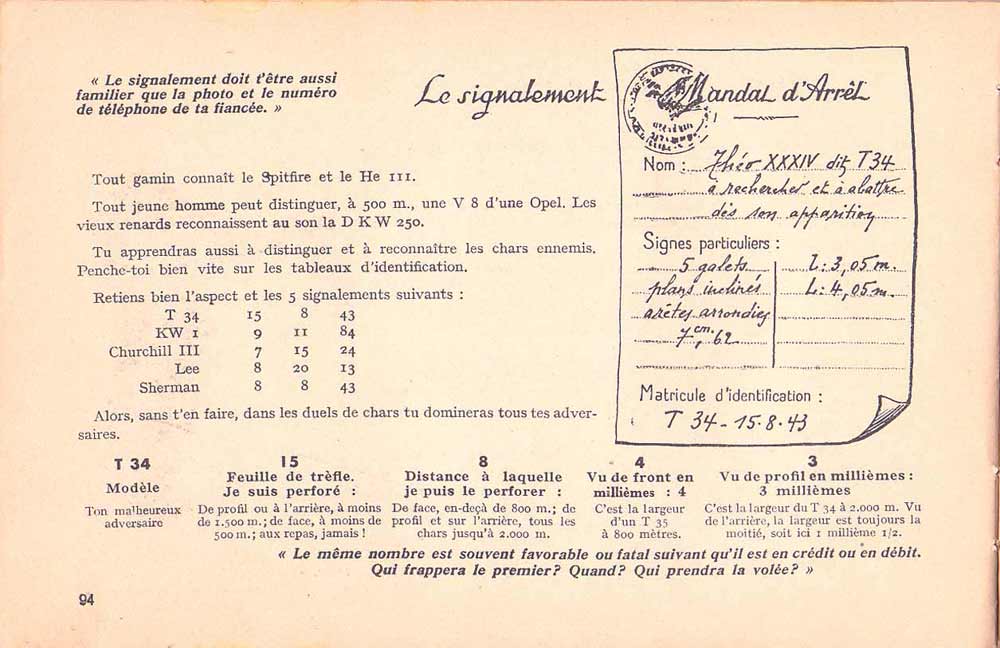 « Le signalement doit t'être aussi
familier que la photo et le numéro
de téléphone de ta fiancée. »
Le signalement
Tout gamin connaît le Spitfire et le He 111.
Tout jeune homme peut distinguer, à 500 m., une V 8 d'une Opel. Les
vieux renards reconnaissent au son la D K W 250.
Tu apprendras aussi à distinguer et à reconnaître les chars ennemis.
Penche-toi bien vite sur les tableaux d'identification.
Retiens bien l'aspect et les 5 signalements suivants :
T 34 15 8 43
KW 1 9 11 84
Churchill III 7 15 24
Lee 8 20 13
Sherman 8 8 43
Alors, sans t'en faire, dans les duels de chars tu domineras tous tes adver-
saires.
Mandat d'Arrêt
Nom : Théo XXXIV dit T 34
à rechercher et à abattre
dès son apparition
Signes particuliers :
5 galets l : 3,05 m.
plans inclinés L : 4,05 m.
arêtes arrondies
7 cm, 62
Matricule d'identification :
T 34 - 15.8.43
T 34
Modèle
Ton malheureux
adversaire
15
Feuille de trèfle.
Je suis perforé :
De profil ou à l'arrière, à moins
de 1.500 m.; de face, à moins de
500 m.; aux repas, jamais !
8
Distance à laquelle
je puis le perforer :
De face, en-deçà de 800 m.; de
profil et sur l'arrière, tous les
chars jusqu'à 2.000 m.
4
Vu de front en
millièmes : 4
C'est la largeur
d'un T 35
à 800 mètres.
3
Vu de profil en millièmes :
3 millièmes
C'est la largeur du T 34 à 2.000 m. Vu
de l'arrière, la largeur est toujours la
moitié, soit ici 1 millième 1/2.
« Le même nombre est souvent favorable ou fatal suivant qu'il est en crédit ou en débit.
Qui frappera le premier? Quand? Qui prendra la volée? »
94